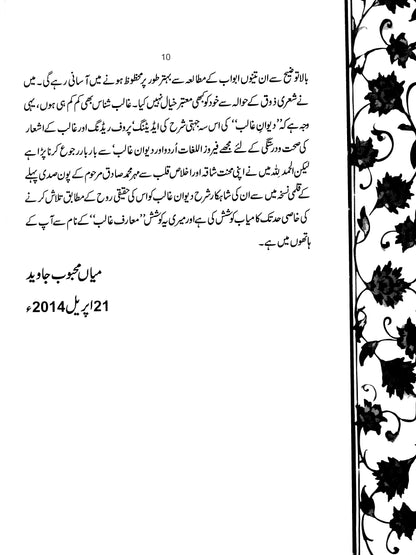 10
بالا توضیح سے ان تینوں ابواب کے مطالعہ سے بہتر طور پر محظوظ ہونے میں آسانی رہے گی۔ میں
نے شعری ذوق کے حوالہ سے خود کو کبھی معتبر خیال نہیں کیا۔ غالب شناس بھی کم کم ہی ہوں، یہی
وجہ ہے کہ ”دیوانِ غالب“ کی اس سہ جہتی شرح کی ایڈیٹنگ‘ پروف ریڈنگ اور غالب کے اشعار
کی صحت و درستگی کے لئے مجھے فیروز اللغات اُردو اور دیوان غالب سے بار بار رجوع کرنا پڑا ہے
لیکن الحمد للہ میں نے اپنی محنت شاقہ اور اخلاص قلب سے مہر محمد صادق مرحوم کے پون صدی پہلے
کے قلمی نسخہ میں سے ان کی شاہکار شرح دیوان غالب کو اس کی حقیقی روح کے مطابق تلاش کرنے
کی خاصی حد تک کامیاب کوشش کی ہے اور میری یہ کوشش ”معارف غالب“ کے نام سے آپ کے
ہاتھوں میں ہے۔
میاں محبوب جاوید
21 اپریل 2014ء